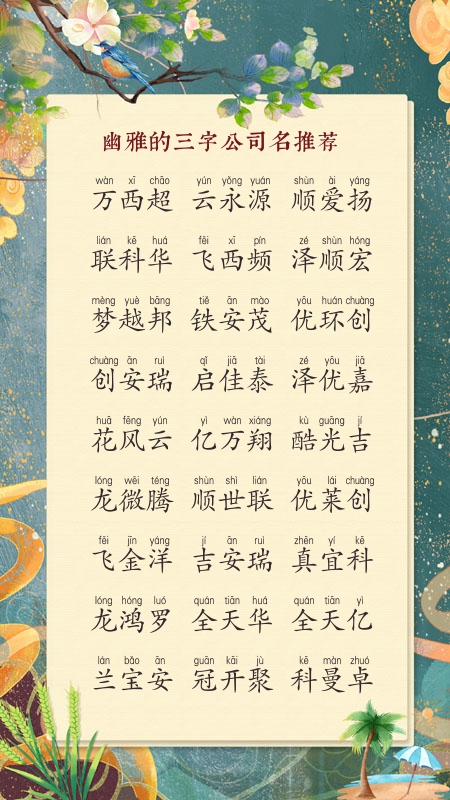 幽雅的三字公司名推荐
wàn xī chāo yún yǒng yuán shùn ài yáng
万西超 云永源 顺爱扬
lián kē huá fēi xī pín zé shùn hóng
联科华 飞西频 泽顺宏
mèng yuè bāng tiě ān mào yōu huán chuàng
梦越邦 铁安茂 优环创
chuàng ān ruì qǐ jiā tài zé yōu jiā
创安瑞 启佳泰 泽优嘉
huā fēng yún yì wàn xiáng kù guāng jí
花风云 亿万翔 酷光吉
lóng wēi téng shùn shì lián yōu lái chuàng
龙微腾 顺世联 优莱创
fēi jīn yáng jí ān ruì zhēn yí kē
飞金洋 吉安瑞 真宜科
lóng hóng luó quán tiān huá quán tiān yì
龙鸿罗 全天华 全天亿
lán bǎo ān guān kāi jù kē màn zhuó
兰宝安 冠开聚 科曼卓